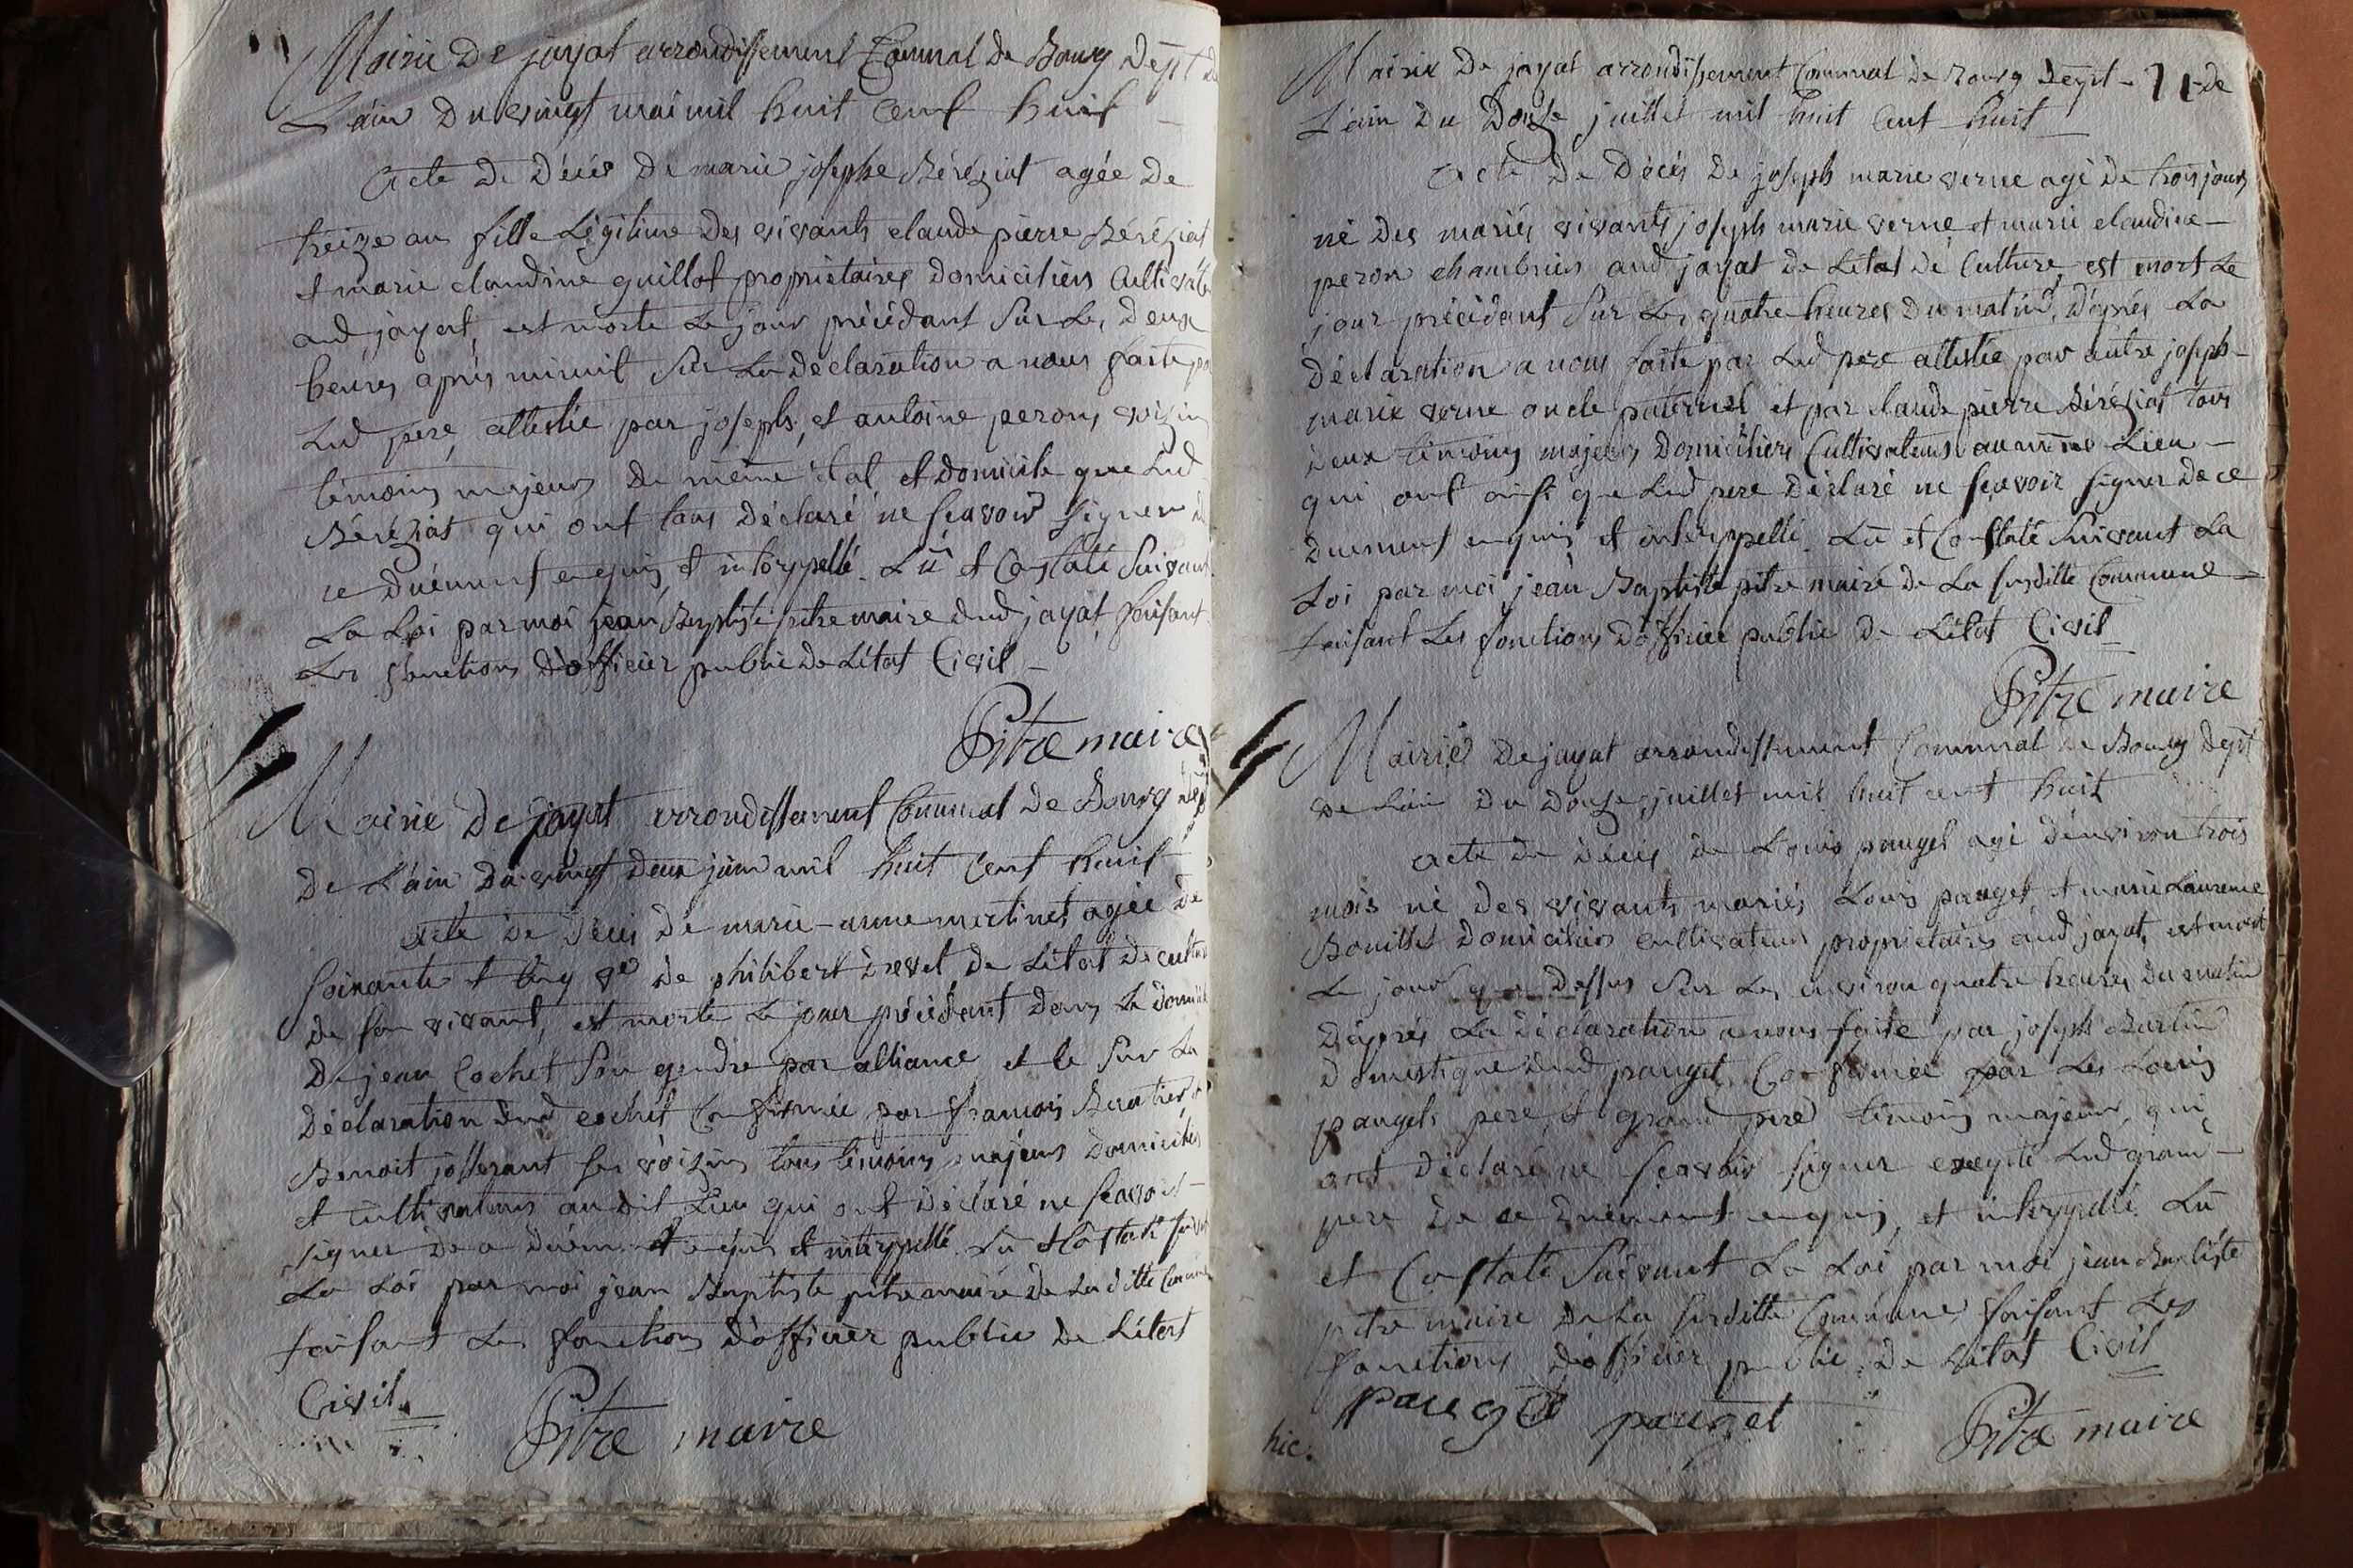 Mairie De jayat arrondissement Communal de Bourg Dept de
L'ain Du vingt mai mil huit cent huit
Acte De Décès De marie josephe Béréziat agée De
treize ans fille Légitime Des vivants claude pierre Béréziat
et marie claudine guillot propriétaires Domiciliés Cultivat
aud jayat, est morte Le jour précédant Sur Les Deux
heures après minuit Sur La Déclaration a nous faite par
Led pere, attestée par joseph, et antoine perons, voisins
témoins majeurs De même état et Domicile que Led
Béréziat qui ont tous Déclaré ne sçavoir signer de
ce duëment enquis et interppellé. Lû et Constaté Suivant
La Loi par moi jean Baptiste pitre maire dud jayat faisant
Les fonctions D'officier public de L'état Civil
Pitre maire
Mairie De jayat arrondissement Communal De Bourg dept
De L'ain Du vingt Deux juin mil huit cent huit
Acte De Décès De marie-anne martinet agée De
soixante et cinq ve De philibert drevet De L'état De culture
De son vivant, est morte Le jour précédant Dans Le Domicile
De jean Cochet Son gendre par alliance et le Sur La
Déclaration dud cochet Confirmée par françois Buatier et
Benoit josserant ses voisins tous témoins majeurs Domiciliés
et cultivateurs au dit Lieu qui ont Déclaré ne sçavoir
signer De ce duëment enquis et interppellé. Lû et Constaté suivant
La Loi par moi jean Baptiste pitre maire De La ditte Commune
faisant Les fonctions D'officier public De L'état
Civil
Pitre maire
Mairie De jayat arrondissement Communal De Bourg Dept - 71 - de
L'ain Du Douze juillet mil huit cent huit
Acte De Décès De joseph marie verne agé De trois jours
né Des mariés vivants joseph marie verne et marie claudine
peron chambriers aud jayat De L'état De Culture, est mort Le
jour précédant Sur Les quatre heures Du matin, D'après La
Déclaration a nous faite par Led pere attestée par autre joseph
marie verne oncle paternel et par claude pierre Béréziat tous
Deux témoins majeurs Domiciliés Cultivateurs au même Lieu
qui ont ainsi que Led pere Déclaré ne sçavoir signer De ce
duement enquis et interppellé. Lû et Constaté Suivant La
Loi par moi jean Baptiste pitre maire De La susditte Commune
faisant Les fonctions D'officier public De L'état Civil
Pitre maire
Mairie De jayat arrondissement Communal De Bourg Dept
De L'ain Du Douze juillet mil huit cent huit
acte De Décès De Louis pauget agé D'environ trois
mois né Des vivants mariés Louis pauget, et marie Laurence
Bouillet Domiciliés cultivateurs propriétaires aud jayat, est mort
Le jour que Dessus Sur Les environ quatre heures Du matin
D'après La Déclaration a nous faite par joseph Burtin
Domestique Dud pauget, Confirmée par Les Louis
paugets pere, et grand pere témoins majeurs, qui
ont Déclaré ne sçavoir signer excepté Led grand
pere De ce duement enquis, et interppellé. Lû
et Constaté Suivant La Loi par moi jean Baptiste
pitre maire De La susditte Commune faisant Les
fonctions D'officier public De L'état Civil
pauget pauget
Pitre maire
hic.